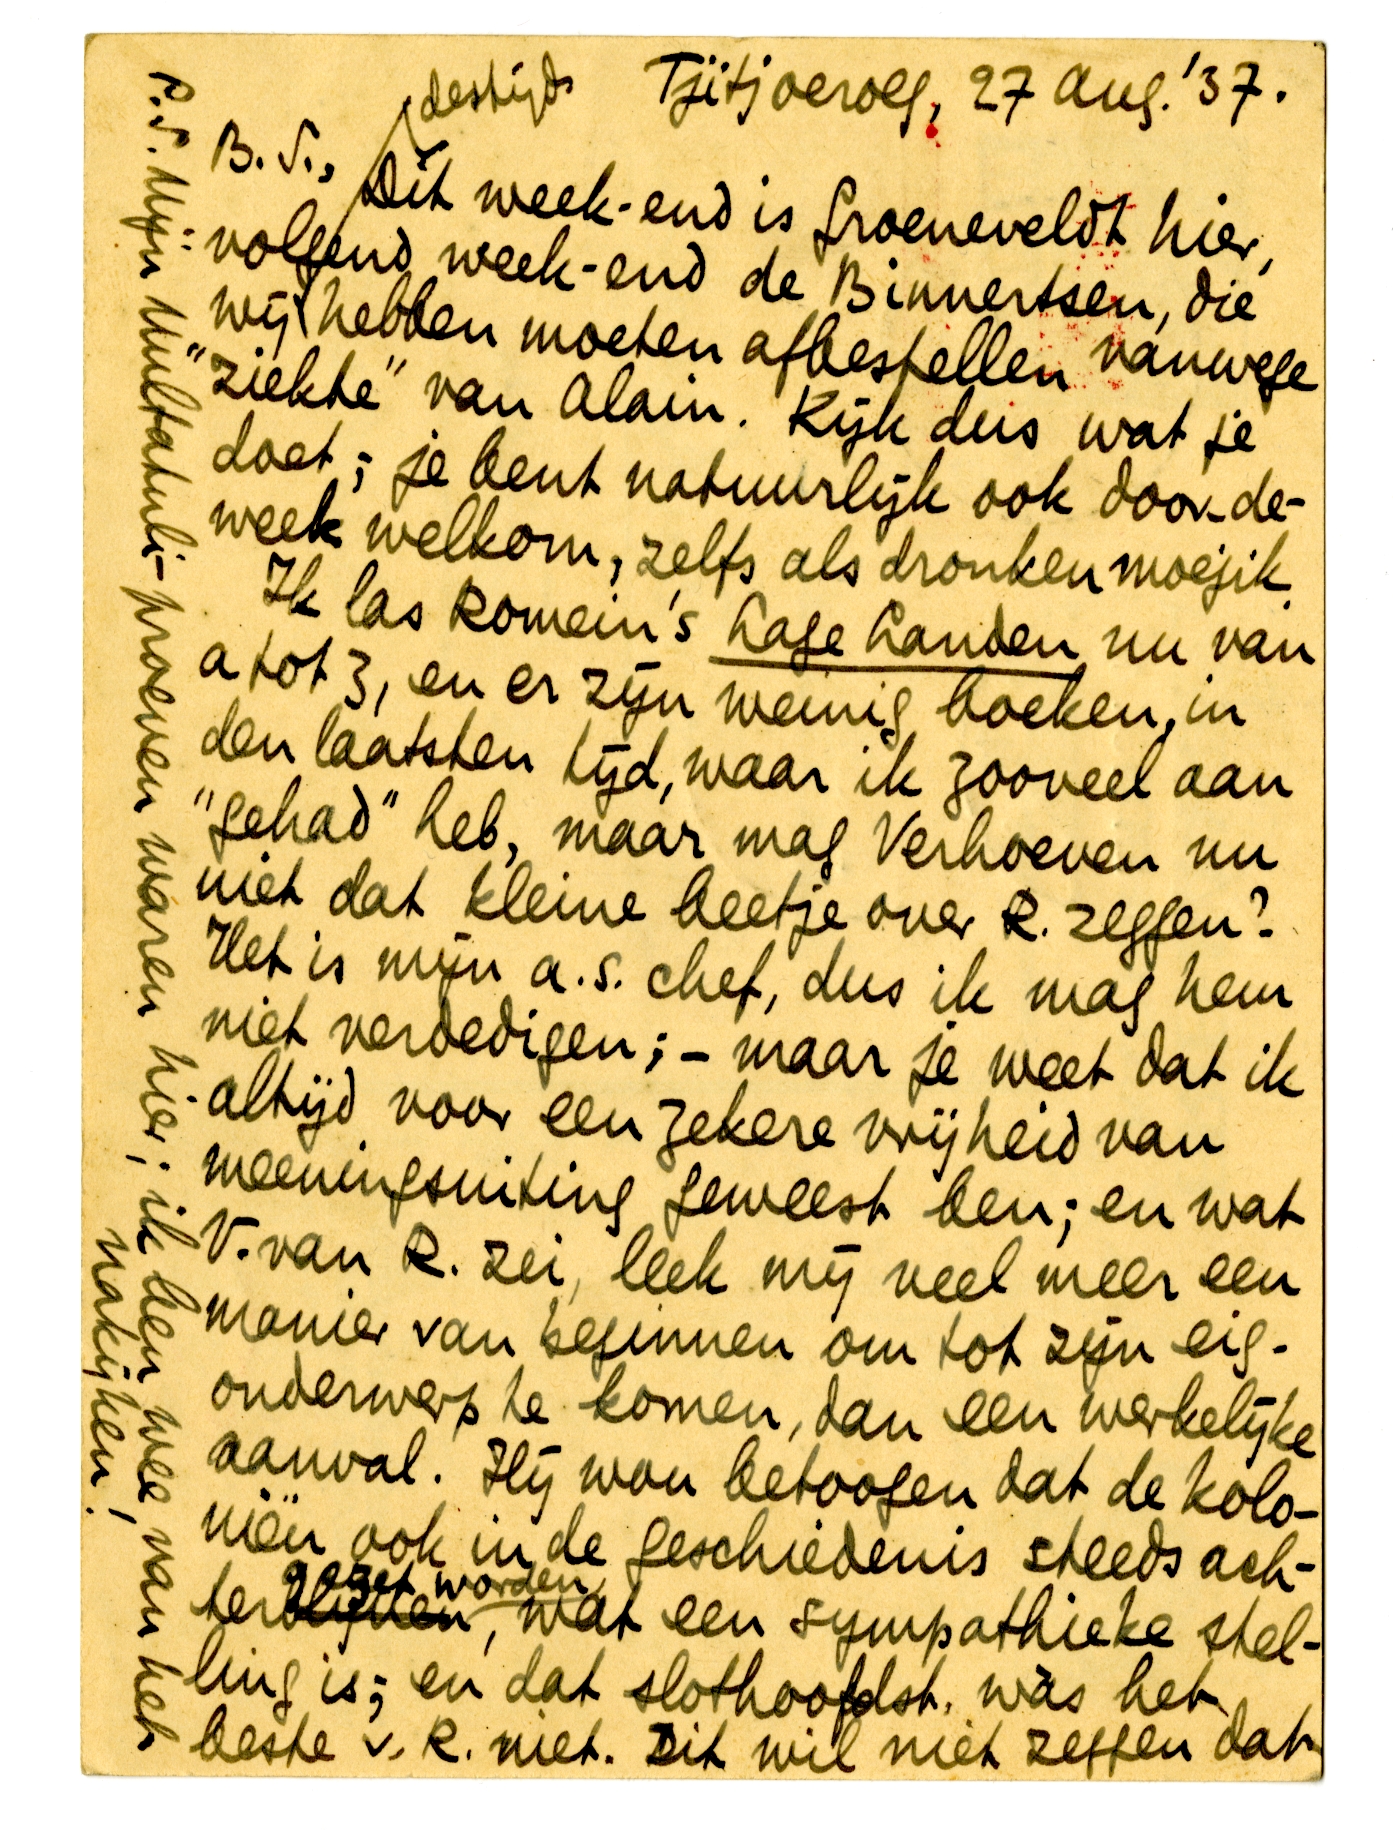 Tjitjoeroeg, 27 Aug. '37.
destijds
B. S.,
Dit week-end is Groeneveldt hier,
volgend week-end de Binnertsen, die
wij hebben moeten afbestellen vanwege
"ziekte" van Alain. Kijk dus wat je
doet; je bent natuurlijk ook door-de-
week welkom, zelfs als dronken moejik.
Ik las Romein's Lage Landen nu van
a tot z, en er zijn weinig boeken, in
den laatsten tijd, waar ik zooveel aan
"gehad" heb, maar mag Verhoeven nu
niet dat kleine beetje over R. zeggen?
Het is mijn a.s. chef, dus ik mag hem
niet verdedigen; – maar je weet dat ik
altijd voor een zekere vrijheid van
meeningsuiting geweest ben; en wat
V. van R. zei, leek mij veel meer een
manier van beginnen om tot zijn eig.
onderwerp te komen, dan een werkelijke
aanval. Hij wou betoogen dat de kolo-
niën ook in de geschiedenis steeds ach-
gezet worden
ter, wat een sympathieke stel-
ling is; en dat slothoofdst. wàs het
beste v. R. niet. Dit wil niet zeggen dat
P.S. Mijn Multatuli-proeven waren hier; ik ben wee van het
nakijken!